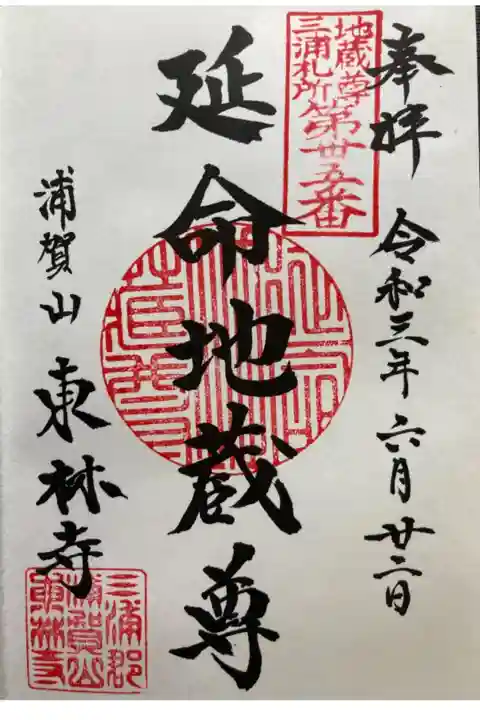 奉拝 令和三年六月廿二日
地蔵尊
三浦札所第廿五番
延命地蔵尊
浦賀山 東林寺
三浦郡
浦賀山
東林寺